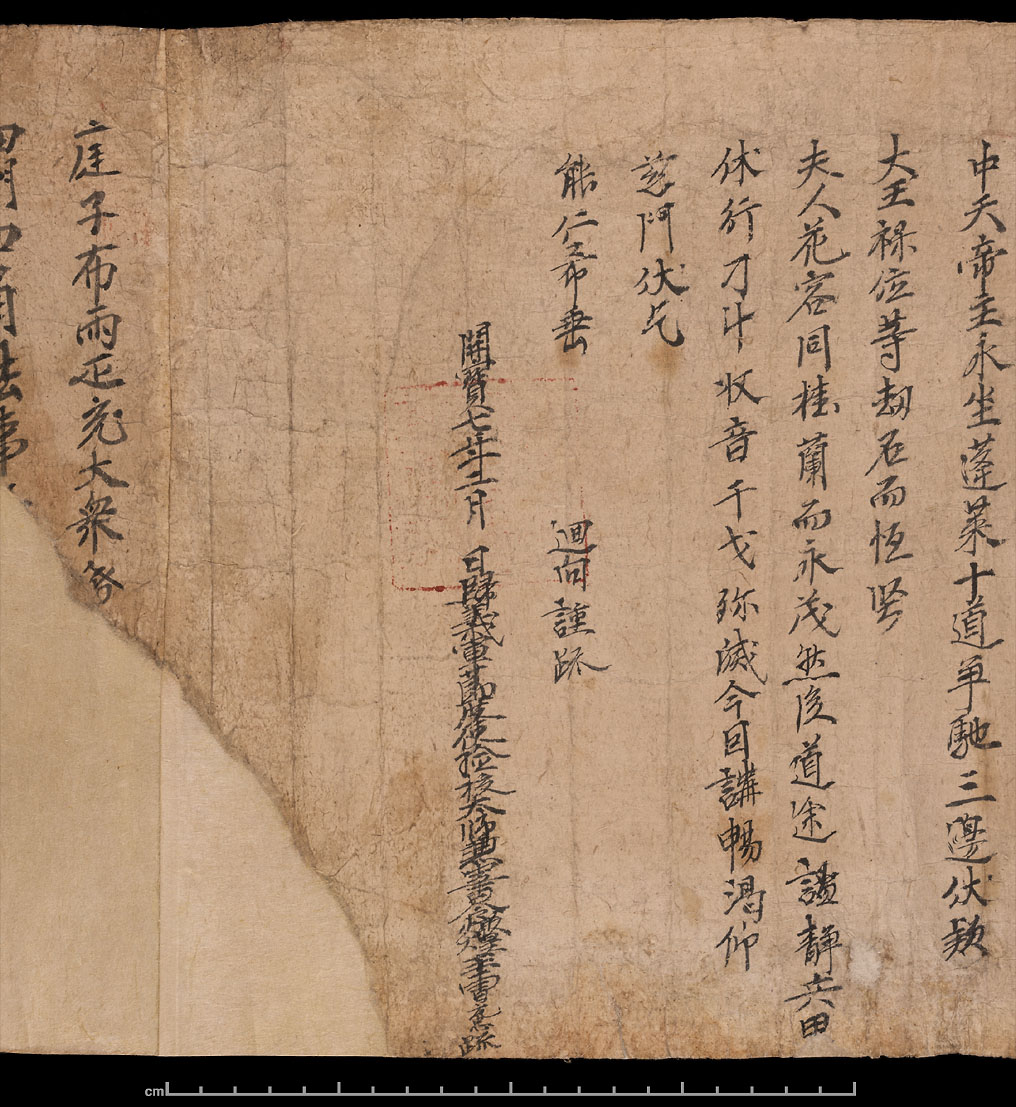 中天帝主永坐蓬萊十道爭馳三邊伏欵
大王禄位等劫石而恒坚
夫人花容同桂蘭而永茂然後道途謐静兵甲
休行刁斗收音干戈弥滅今因講暢渴仰
慈門伏乞
能仁希垂　迴向謹疏
開寶七年二月　日歸義軍節度使檢校太師兼中書令燉煌王曹　疏
庭子布兩疋充大衆
四門四角法事